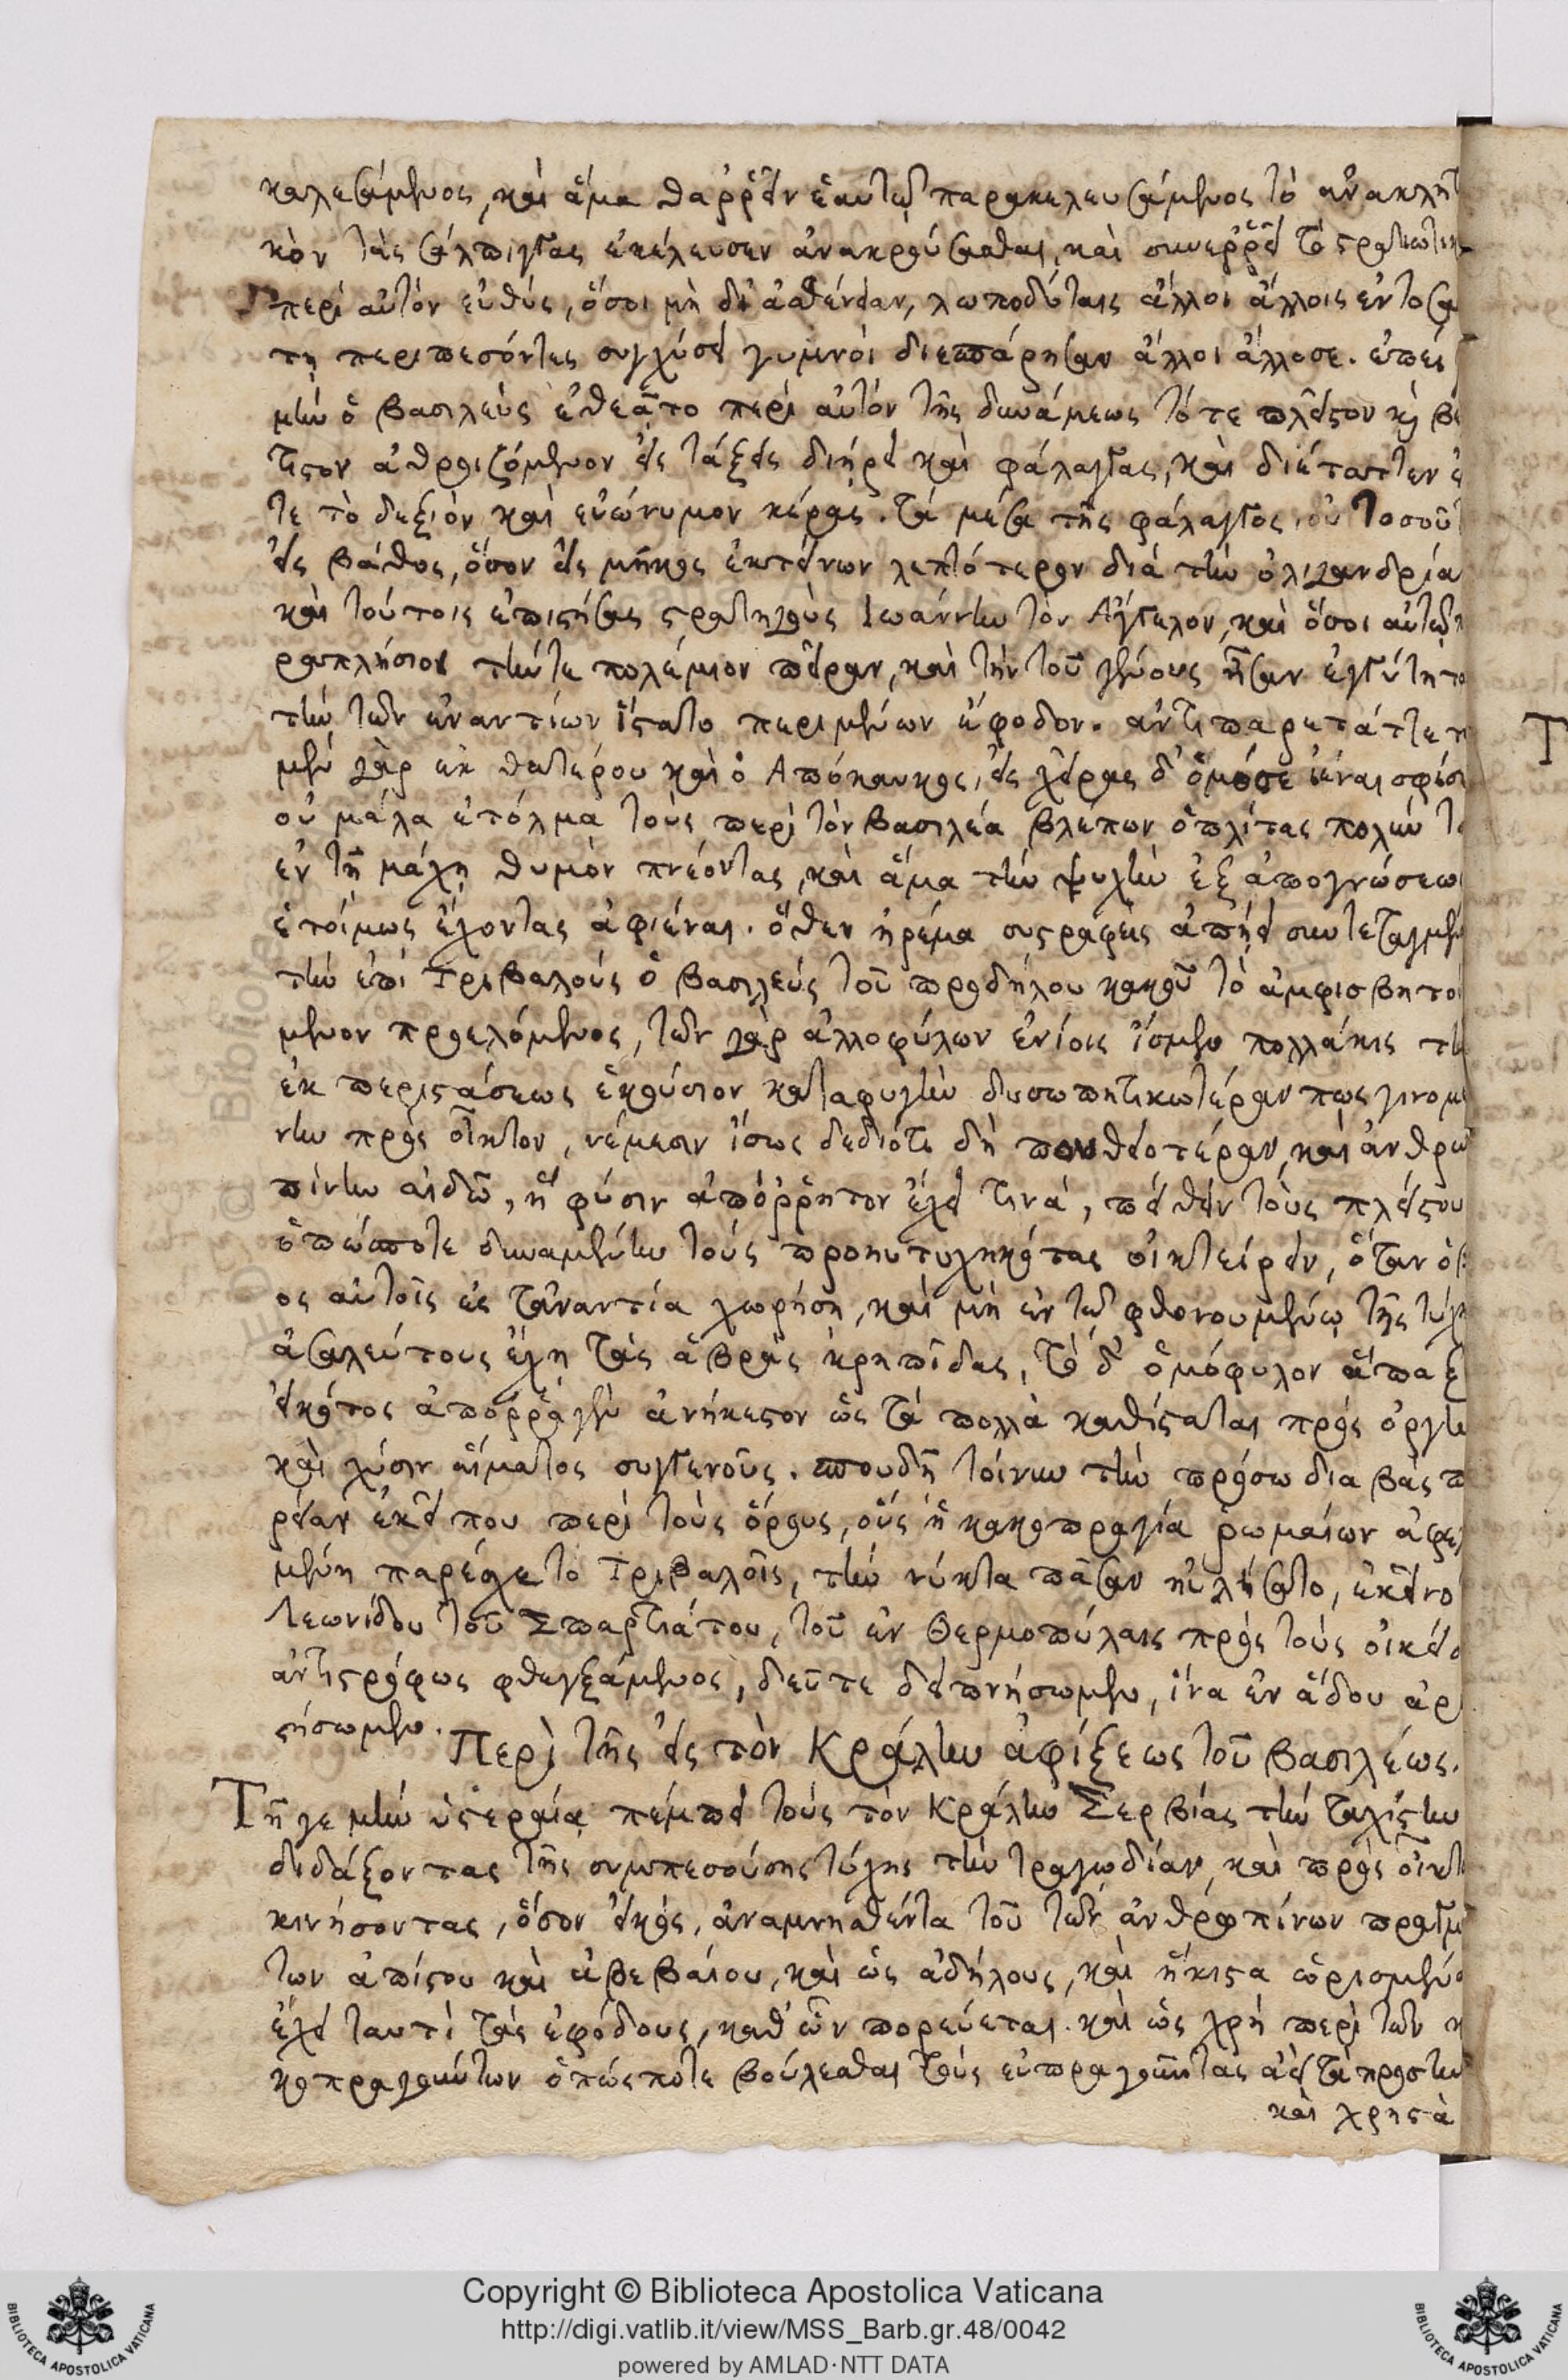 καλεσάμενος, καὶ ἅμα θαῤῥεῖν ἑαυτῷ παρακελευσάμενος τὸ ἀνακλητ
κὸν τὰς σάλπιγγας ἐκέλευσεν ἀνακρούσασθαι, καὶ συνεῤῥεῖ τὸ στρατιωτικ
περὶ αὐτὸν εὐθύς, ὅσοι μὴ δι' ἀσθένειαν, λωποδύταις ἄλλοι ἄλλοις ἐν τοσα
τῃ περιπεσόντες συγχύσει γυμνοὶ διεσπάρησαν ἄλλοι ἄλλοσε. ἐπεὶ
μὴν ὁ βασιλεὺς ἐθεᾶτο περὶ αὐτὸν τῆς δυνάμεως τό τε πλεῖστον κὶ βέ
τιστον ἀθροιζόμενον εἰς τάξεις διῄρει καὶ φάλαγγας, καὶ διέταττεν ἐ
τε τὸ δεξιὸν καὶ εὐώνυμον κέρας. τὰ μέσα τῆς φάλαγγος, οὐ τοσοῦτ
εἰς βάθος, ὅσον εἰς μῆκος ἐκτείνων λεπτότερον διὰ τὴν ὀλιγανδρία
καὶ τούτοις ἐπιστήσας στρατηγοὺς Ιωάννην τὸν Ἄγγελον, καὶ ὅσοι αὐτῷ π
ραπλήσιοι τήν τε πολέμιον πεῖραν, καὶ τὴν τοῦ γένους ἦσαν ἐγγύτητα
τὴν τῶν ἐναντίων ἵστατο περιμένων ἔφοδον. ἀντιπαρετάττετο
μὲν γὰρ ἐκ θατέρου καὶ ὁ Απόκαυκος, εἰς χεῖρας δ' ὁμόσε ἰέναι σφίσι
οὐ μάλα ἐτόλμα τοὺς περὶ τὸν βασιλέα βλέπων ὁπλίτας πολὺν τὸ
ἐν τῇ μάχῃ θυμὸν πνέοντας, καὶ ἅμα τὴν ψυχὴν ἐξ ἀπογνώσεως
ἑτοίμως ἔχοντας ἀφιέναι. ὅθεν ἠρέμα συστραφεὶς ἀπῄει συντεταγμέν
τὴν ἐπὶ Τριβαλοὺς ὁ βασιλεὺς τοῦ προδήλου κακοῦ τὸ ἀμφισβητού
μενον προελόμενος, τῶν γὰρ ἀλλοφύλων ἐνίοις ἴσμεν πολλάκις τὴ
ἐκ περιστάσεως ἑκούσιον καταφυγὴν δυσωπητικωτέραν πως γινομέ
νην πρὸς οἶκτον, νέμεσιν ἴσως δεδιότι δὴ που θειοτέραν, καὶ ἀνθρω
πίνην αἰδῶ, ἢ φύσιν ἀπόῤῥητον ἔχει τινά, πείθειν τοὺς πλείστου
ὁπώσποτε δυναμένην τοὺς προηυτυχηκότας οἰκτείρειν, ὅταν ὁ
ος αὐτοῖς ἐς τἀναντία χωρήσῃ, καὶ μὴ ἐν τῷ φθονουμένῳ τῆς τύχ
ἀσαλεύτους ἔχῃ τὰς ἁβρὰς κρηπῖδας, τὸ δ' ὁμόφυλον ἅπαξ
εἰκότος ἀποῤῥαγὲν ἀνήκεστον ὡς τὰ πολλὰ καθίσταται πρὸς ὀργὴ
καὶ χύσιν αἵματος συγγενοῦς. σπουδῇ τοίνυν τὴν πρόσω διαβὰς π
ρείαν ἐκεῖ που περὶ τοὺς ὅρους, οὓς ἡ κακοπραγία ῥωμαίων ἀφει
μένη παρέσχετο Τριβαλοῖς, τὴν νύκτα πᾶσαν ηὐλίσατο, ἐκεῖνο
Λεωνίδου τοῦ Σπαρτιάτου, τοῦ ἐν Θερμοπύλαις πρὸς τοὺς οἰκείο
ἀντιστρόφως φθεγξάμενος, δεῦτε δειπνήσωμεν, ἵνα ἐν ᾅδου ἀρι
στήσωμεν.
Περὶ τῆς εἰς τὸν Κράλην ἀφίξεως τοῦ βασιλέως.
Τῇ γε μὴν ὑστεραίᾳ πέμπει τοὺς τὸν Κράλην Σερβίας τὴν ταχίστην
διδάξοντας τῆς συμπεσούσης τύχης τὴν τραγῳδίαν, καὶ πρὸς οἶκτο
κινήσοντας, ὅσον εἰκὸς, ἀναμνησθέντα τοῦ τῶν ἀνθρωπίνων πραγμά
των ἀπίστου καὶ ἀβεβαίου, καὶ ὡς ἀδήλους, καὶ ἥκιστα ὡρισμένα
ἔχει ταυτὶ τὰς ἐφόδους, καθ' ὧν πορεύεται. καὶ ὡς χρὴ περὶ τῶν κ
κοπραγούντων ὁπώσποτε βούλεσθαι τοὺς εὐπραγοῦντας ἀεὶ τὰ προστυ
καὶ χρηστὰ
Copyright © Biblioteca Apostolica Vaticana
http://digi.vatlib.it/view/MSS_Barb.gr.48/0042
powered by AMLAD·NTT DATA
BIBLIOTECA APOSTOLICA VATICANA
BIBLIOTECA APOSTOLICA VATICANA